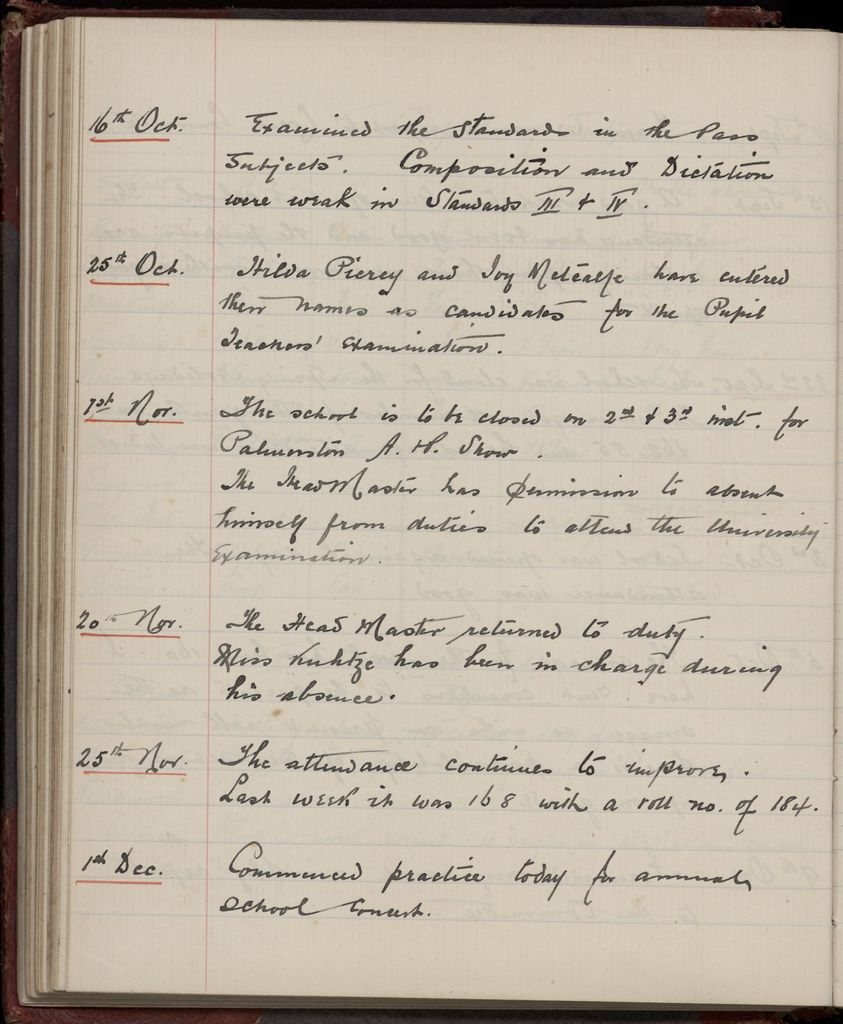 16th Oct. Examined the Standards in the Pass
Subjects. Composition and Dictation
were weak in Standards III & IV.
25th Oct. Hilda Piercy and Joy Metcalfe have entered
their names as candidates for the Pupil
Teachers' Examination.
1st Nov. The school is to be closed on 2nd & 3rd inst. for
Palmerston A. & P. Show.
The Head Master has permission to absent
himself from duties to attend the University
Examination.
20th Nov. The Head Master returned to duty.
Miss Kuhtze has been in charge during
his absence.
25th Nov. The attendance continues to improve.
Last week it was 168 with a roll no. of 184.
1st Dec. Commenced practice today for annual
school Concert.